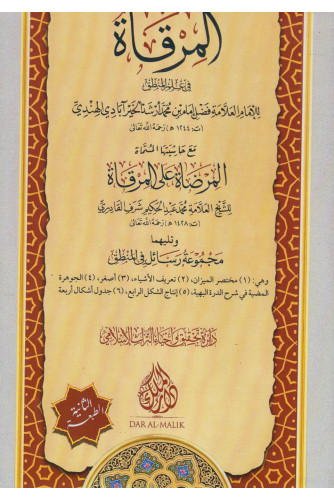 المرقاة
في علم المنطق
للإمام العلامة فضل إمام بن محمد أرشد الخير آبادي الهندي
(ت: ١٢٤٤ هـ) رحمه الله تعالى
مع حاشيتها المسماة
المرضاة على المرقاة
للشيخ العلامة محمد عبد الحكيم شرف القادري
(ت: ١٤٢٨ هـ) رحمه الله تعالى
وتليهما
مجموعة رسائل في المنطق
وهي: (١) مختصر الميزان، (٢) تعريف الأشياء، (٣) أصغر، (٤) الجوهرة
المضية في شرح الدرة البهية، (٥) إنتاج الشكل الرابع، (٦) جدول أشكال أربعة
دائرة تحقيق وإحياء التراث الإسلامي
دار الملك
DAR AL-MALIK
الطبعة
الثانية